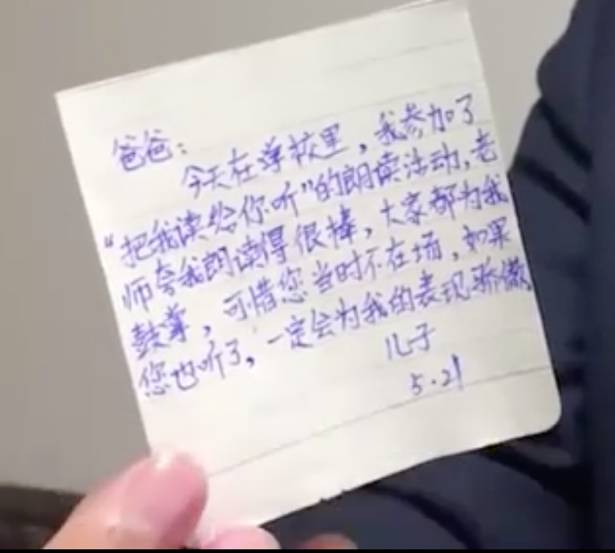 爸爸：
今天在学校里，我参加了
“把我读给你听”的朗读活动，老
师夸我朗读得很棒，大家都为我
鼓掌，可惜您当时不在场，如果
您也听了，一定会为我的表现骄傲
儿子
5.21